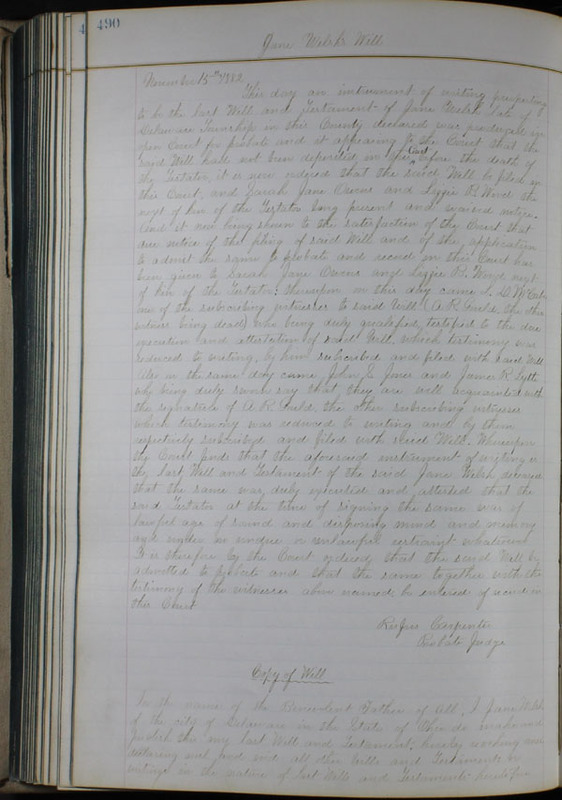 490
Jane Welsh's Will
November 15th 1882
This day an instrument of writing purporting
to be the last Will and Testament of Jane Welsh late of
Delaware Township in this County deceased was produced in
open Court for probate and it appearing to the Court that the
said Will had not been deposited in this Court before the death of
the Testator, it is now ordered that the said Will be filed in
this Court, and Sarah Jane Owens and Lizzie R. Wood the
next of kin of the Testator being present and waived notice.
And it now being shown to the satisfaction of the Court that
due notice of the filing of said Will and of the application
to admit the same to probate and record in this Court has
been given to Sarah Jane Owens and Lizzie R. Wood next
of kin of the Testator: thereupon on this day came
one of the subscribing witnesses to said Will (A R Gould, the other
witness being dead) who being duly qualified, testified to the due
execution and attestation of said Will, which testimony was
reduced to writing, by him subscribed and filed with said Will
Also on the same day came John E Jones and James R Lytle
who being duly sworn say that they are well acquainted with
the signature of A R Gould, the other subscribing witness
which testimony was reduced to writing and by them
respectively subscribed and filed with said Will. Whereupon
the Court finds that the aforesaid instrument of writing is
the last Will and Testament of the said Jane Welsh deceased
that the same was duly executed and attested that the
said Testator at the time of signing the same was of
lawful age of sound and disposing mind and memory
and under no undue or unlawful restraint whatever.
It is therefore by the Court ordered that the said Will be
admitted to probate and that the same together with the
testimony of the witnesses above named be entered of record in
this Court
Rufus Carpenter
Probate Judge
Copy of Will
In the name of the Benevolent Father of All, I Jane Welsh
of the city of Delaware in the State of Ohio do make and
publish this my last Will and Testament, hereby revoking and
and all other Wills and Testaments or
writings in the nature of last Wills and Testaments heretofore